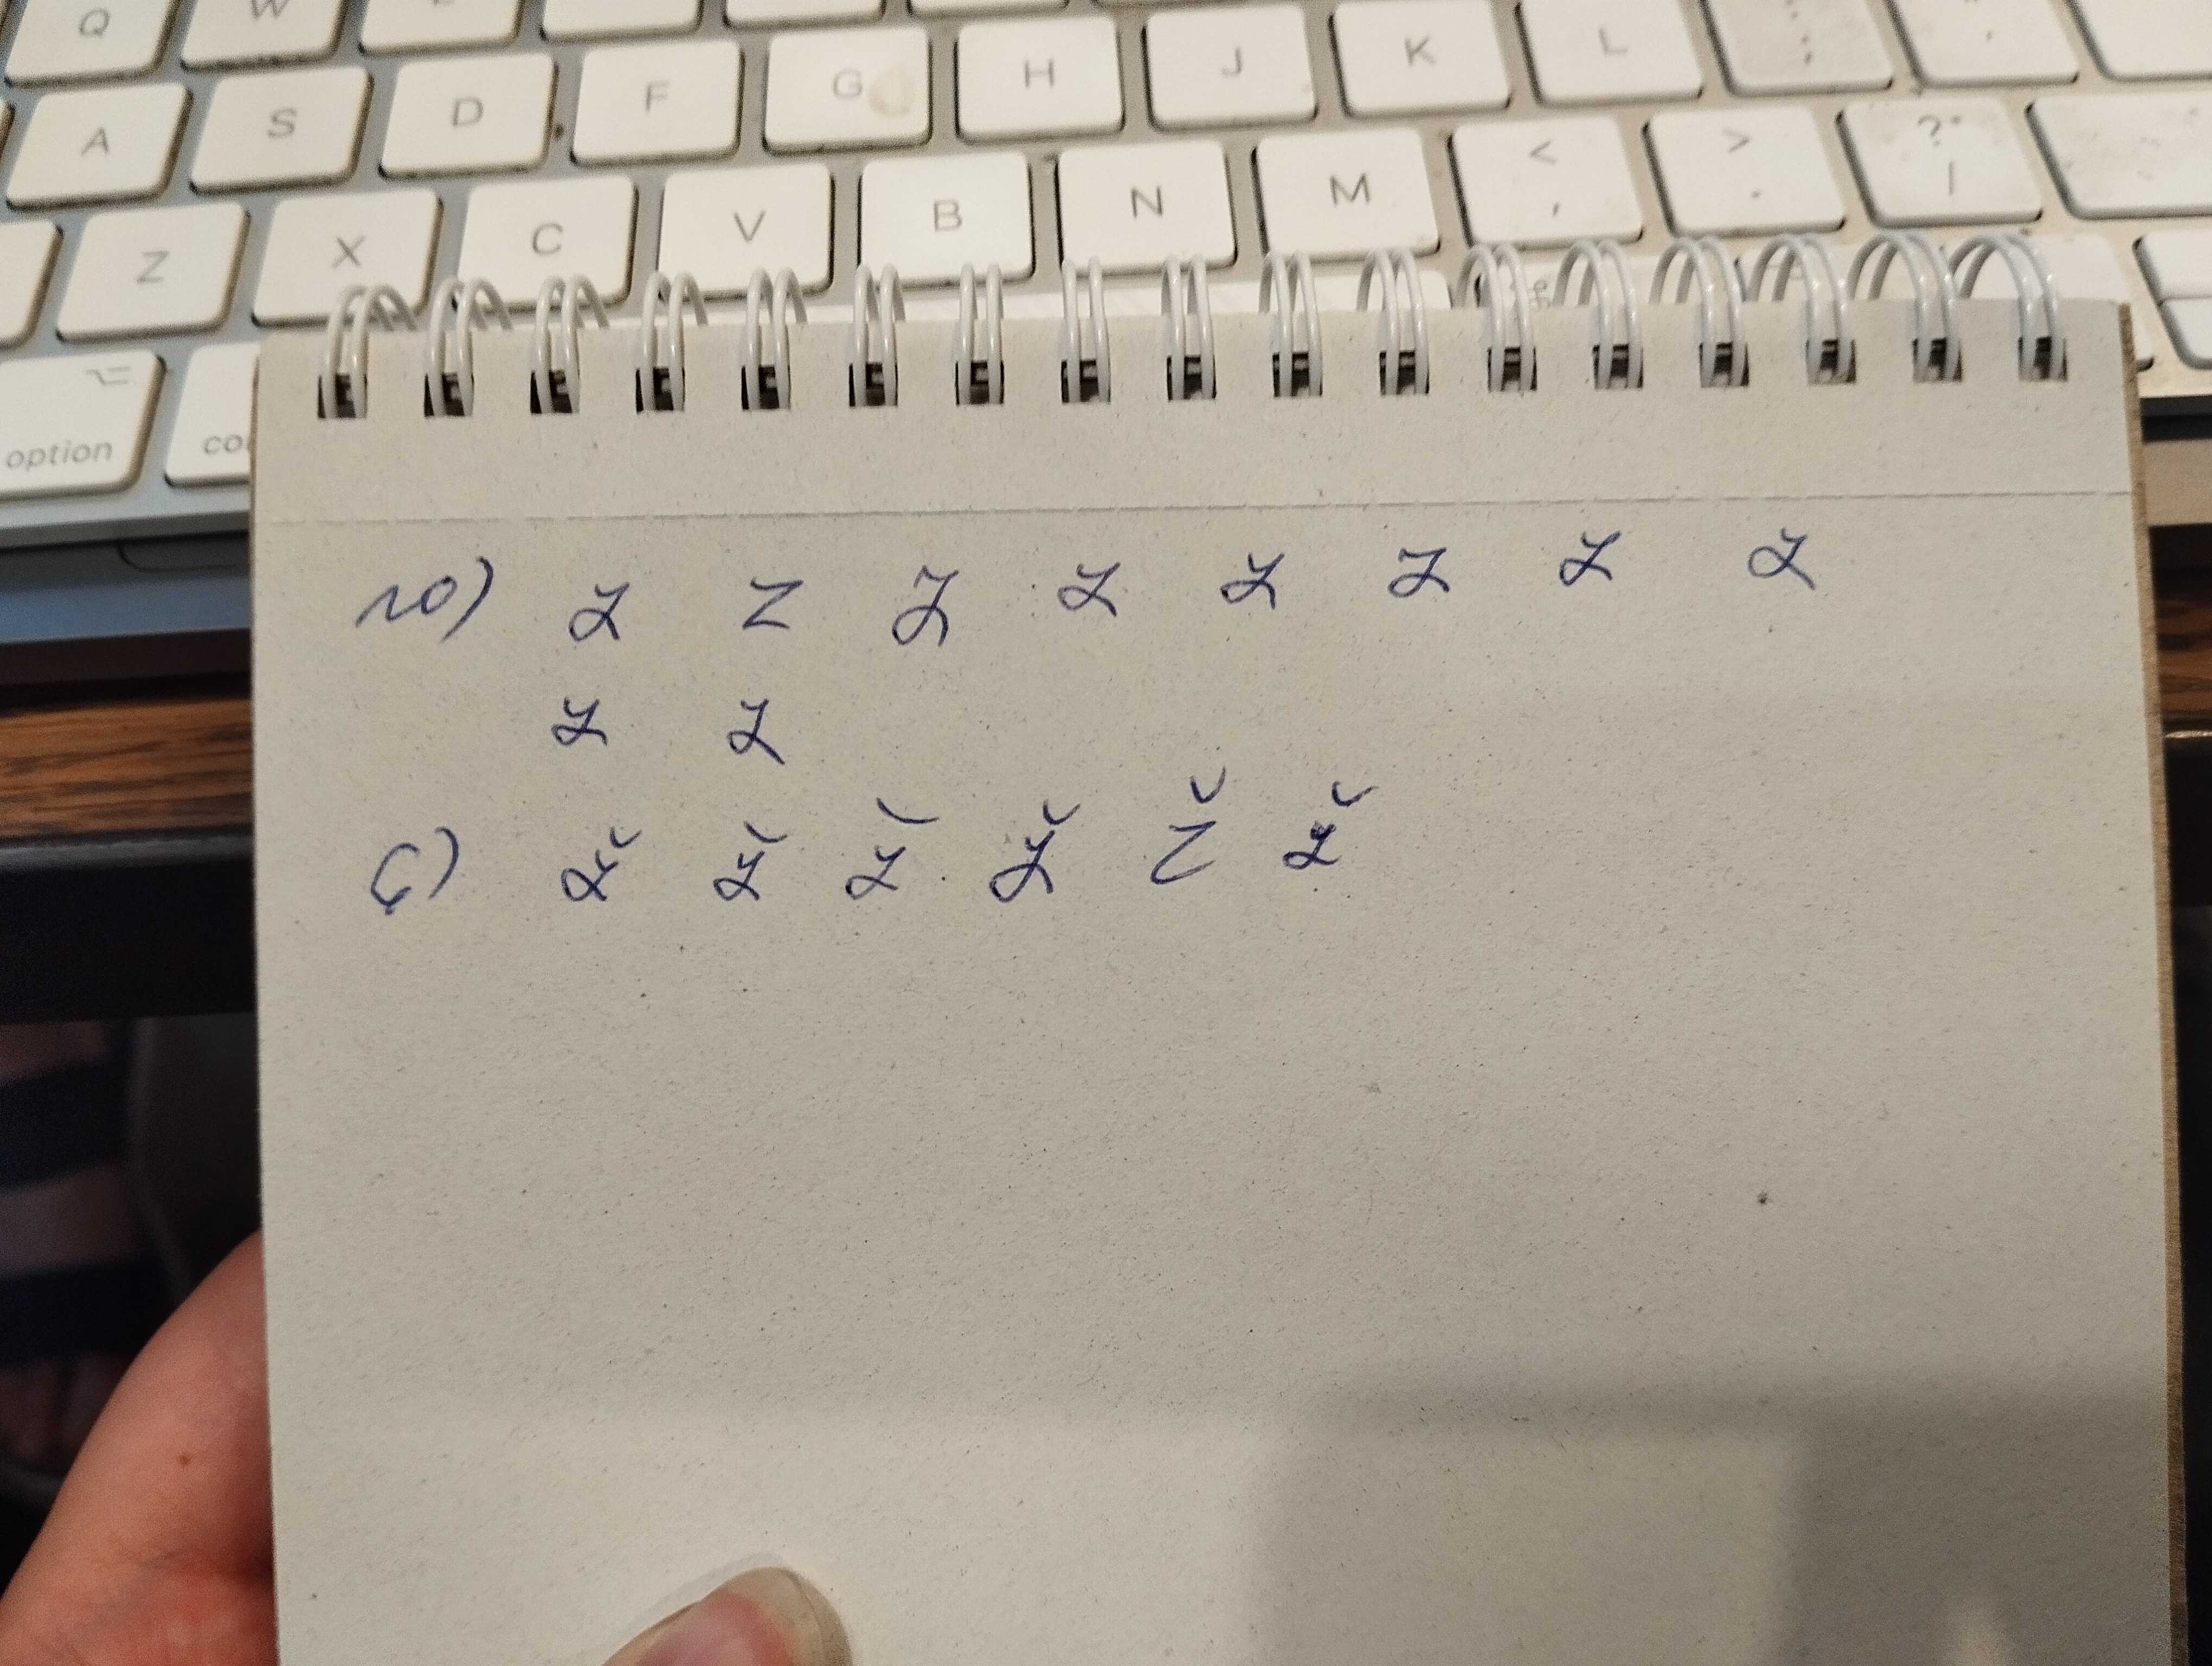 Q W
A S D F G H J K L ; '
Z X C V B N M < , > . ? /
option
10) z z z z z z z z
z z
6) ž ž ž ž ž ž